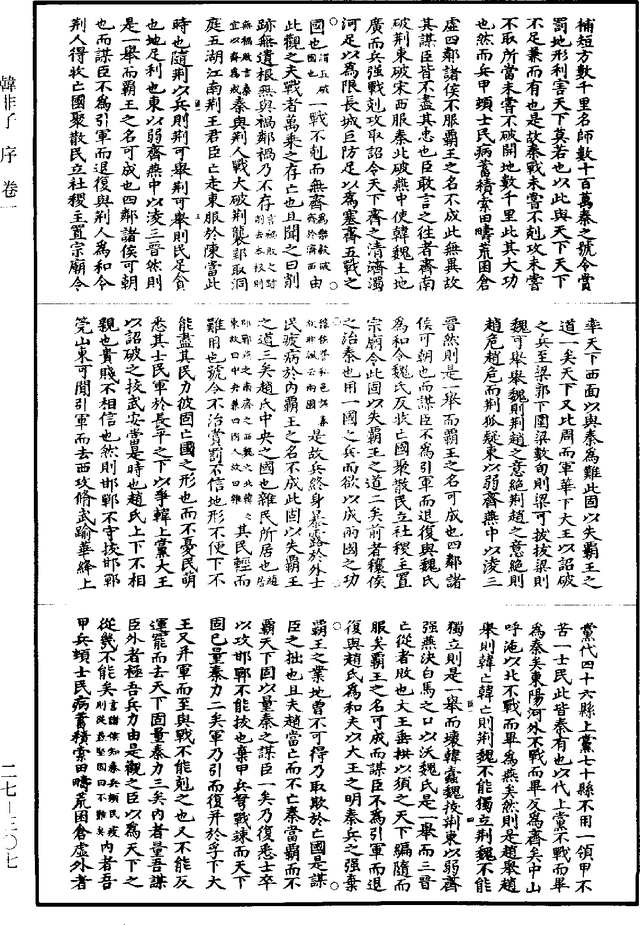 補短方數千里名師數十百萬秦之號令賞
罰地形利害天下莫若也以此與天下天下
不足兼而有也是故秦戰未嘗不剋攻未嘗
不取所當未嘗不破開地數千里此其大功
也然而兵甲頓士民病蓄積索田疇荒囷倉
虛四鄰諸侯不服霸王之名不成此無異故
其謀臣皆不盡其忠也臣敢言之往者齊南
破荆東破宋西服秦北破燕中使韓魏土地
廣而兵強戰剋攻取詔令天下齊之清濟濁
河足以為限長城巨防足以為塞齊五戰之
國也謂五破國也一戰不剋而無齊為樂毅破齊於濟西由
此觀之夫戰者萬乘之存亡也且聞之曰削
跡無遺根無與禍鄰禍乃不存言禍敗之跡削去本根則
無禍敗宜以齊為戒秦與荆人戰大破荆襲郢取洞
庭五湖江南荆王君臣亡走東服於陳當此
時也隨荆以兵則荆可舉荆可舉則民足貪
也地足利也東以弱齊燕中以淩三晉然則
是一舉而霸王之名可成也四鄰諸侯可朝
也而謀臣不為引軍而退復與荆人為和令
荆人得收亡國聚散民立社稷主置宗廟令
率天下西面以與秦為難此固以失霸王之
道一矣天下又比周而軍華下大王以詔破
之兵至梁郭下圍梁數旬則梁可拔拔梁則
魏可舉舉魏則荆趙之意絕荆趙之意絕則
趙危趙危而荆狐疑東以弱齊燕中以淩三
晉然則是一舉而霸王之名可成也四鄰諸
侯可朝也而謀臣不為引軍而退復與魏氏
為和令魏氏反收亡國聚散民立社稷主置
宗廟令此固以失霸王之道二矣前者穰侯
之治秦也用一國之兵而欲以成兩國之功
穰侯營私邑謀秦故非諷云兩國是故兵終身暴露於外士
民疲病於內霸王之名不成此固以失霸王
之道三矣趙氏中央之國也雜民所居也趙居
邯鄲燕之南齊之西魏之北韓之東故曰中央兼四國人故曰雜其民輕而
難用也號令不治賞罰不信地形不便下不
能盡其民力彼固亡國之形也而不憂民萌
悉其士民軍於長平之下以爭韓上黨大王
以詔破之拔武安當是時也趙氏上下不相
親也貴賤不相信也然則邯鄲不守拔邯鄲
筦山東可聞引軍而去西攻脩武踰華絳上
黨代四十六縣上黨七十縣不用一領甲不
苦一士民此皆秦有也以代上黨不戰而畢
為秦矣東陽河外不戰而畢反為齊矣中山
呼沲以北不戰而畢為燕矣然則是趙舉趙
舉則韓亡韓亡則荆魏不能獨立荆魏不能
獨立則是一舉而壞韓蠹魏拔荆東以弱齊
强燕決白馬之口以沃魏氏是一舉而三晉
亡從者敗也大王垂拱以須之天下編隨而
服矣霸王之名可成而謀臣不為引軍而退
復與趙氏為和夫以大王之明秦兵之强棄
霸王之業地曾不可得乃取欺於亡國是謀
臣之拙也且夫趙當亡而不亡秦當霸而不
霸天下固以量秦之謀臣一矣乃復悉士卒
以攻邯鄲不能拔也棄甲兵弩戰竦而天下
固已量秦力二矣軍乃引而復并於孚下大
王又并軍而至與戰不能剋之也又不能反
運罷而去天下固量秦力三矣內者量吾謀
臣外者極吾兵力由是觀之臣以為天下之
從幾不能矣言諸侯知秦兵頓民疲則從益堅固曰不難矣內者吾
甲兵頓士民病蓄積索田疇荒囷倉虛外者
韓非子 序 卷一
二七—三〇七